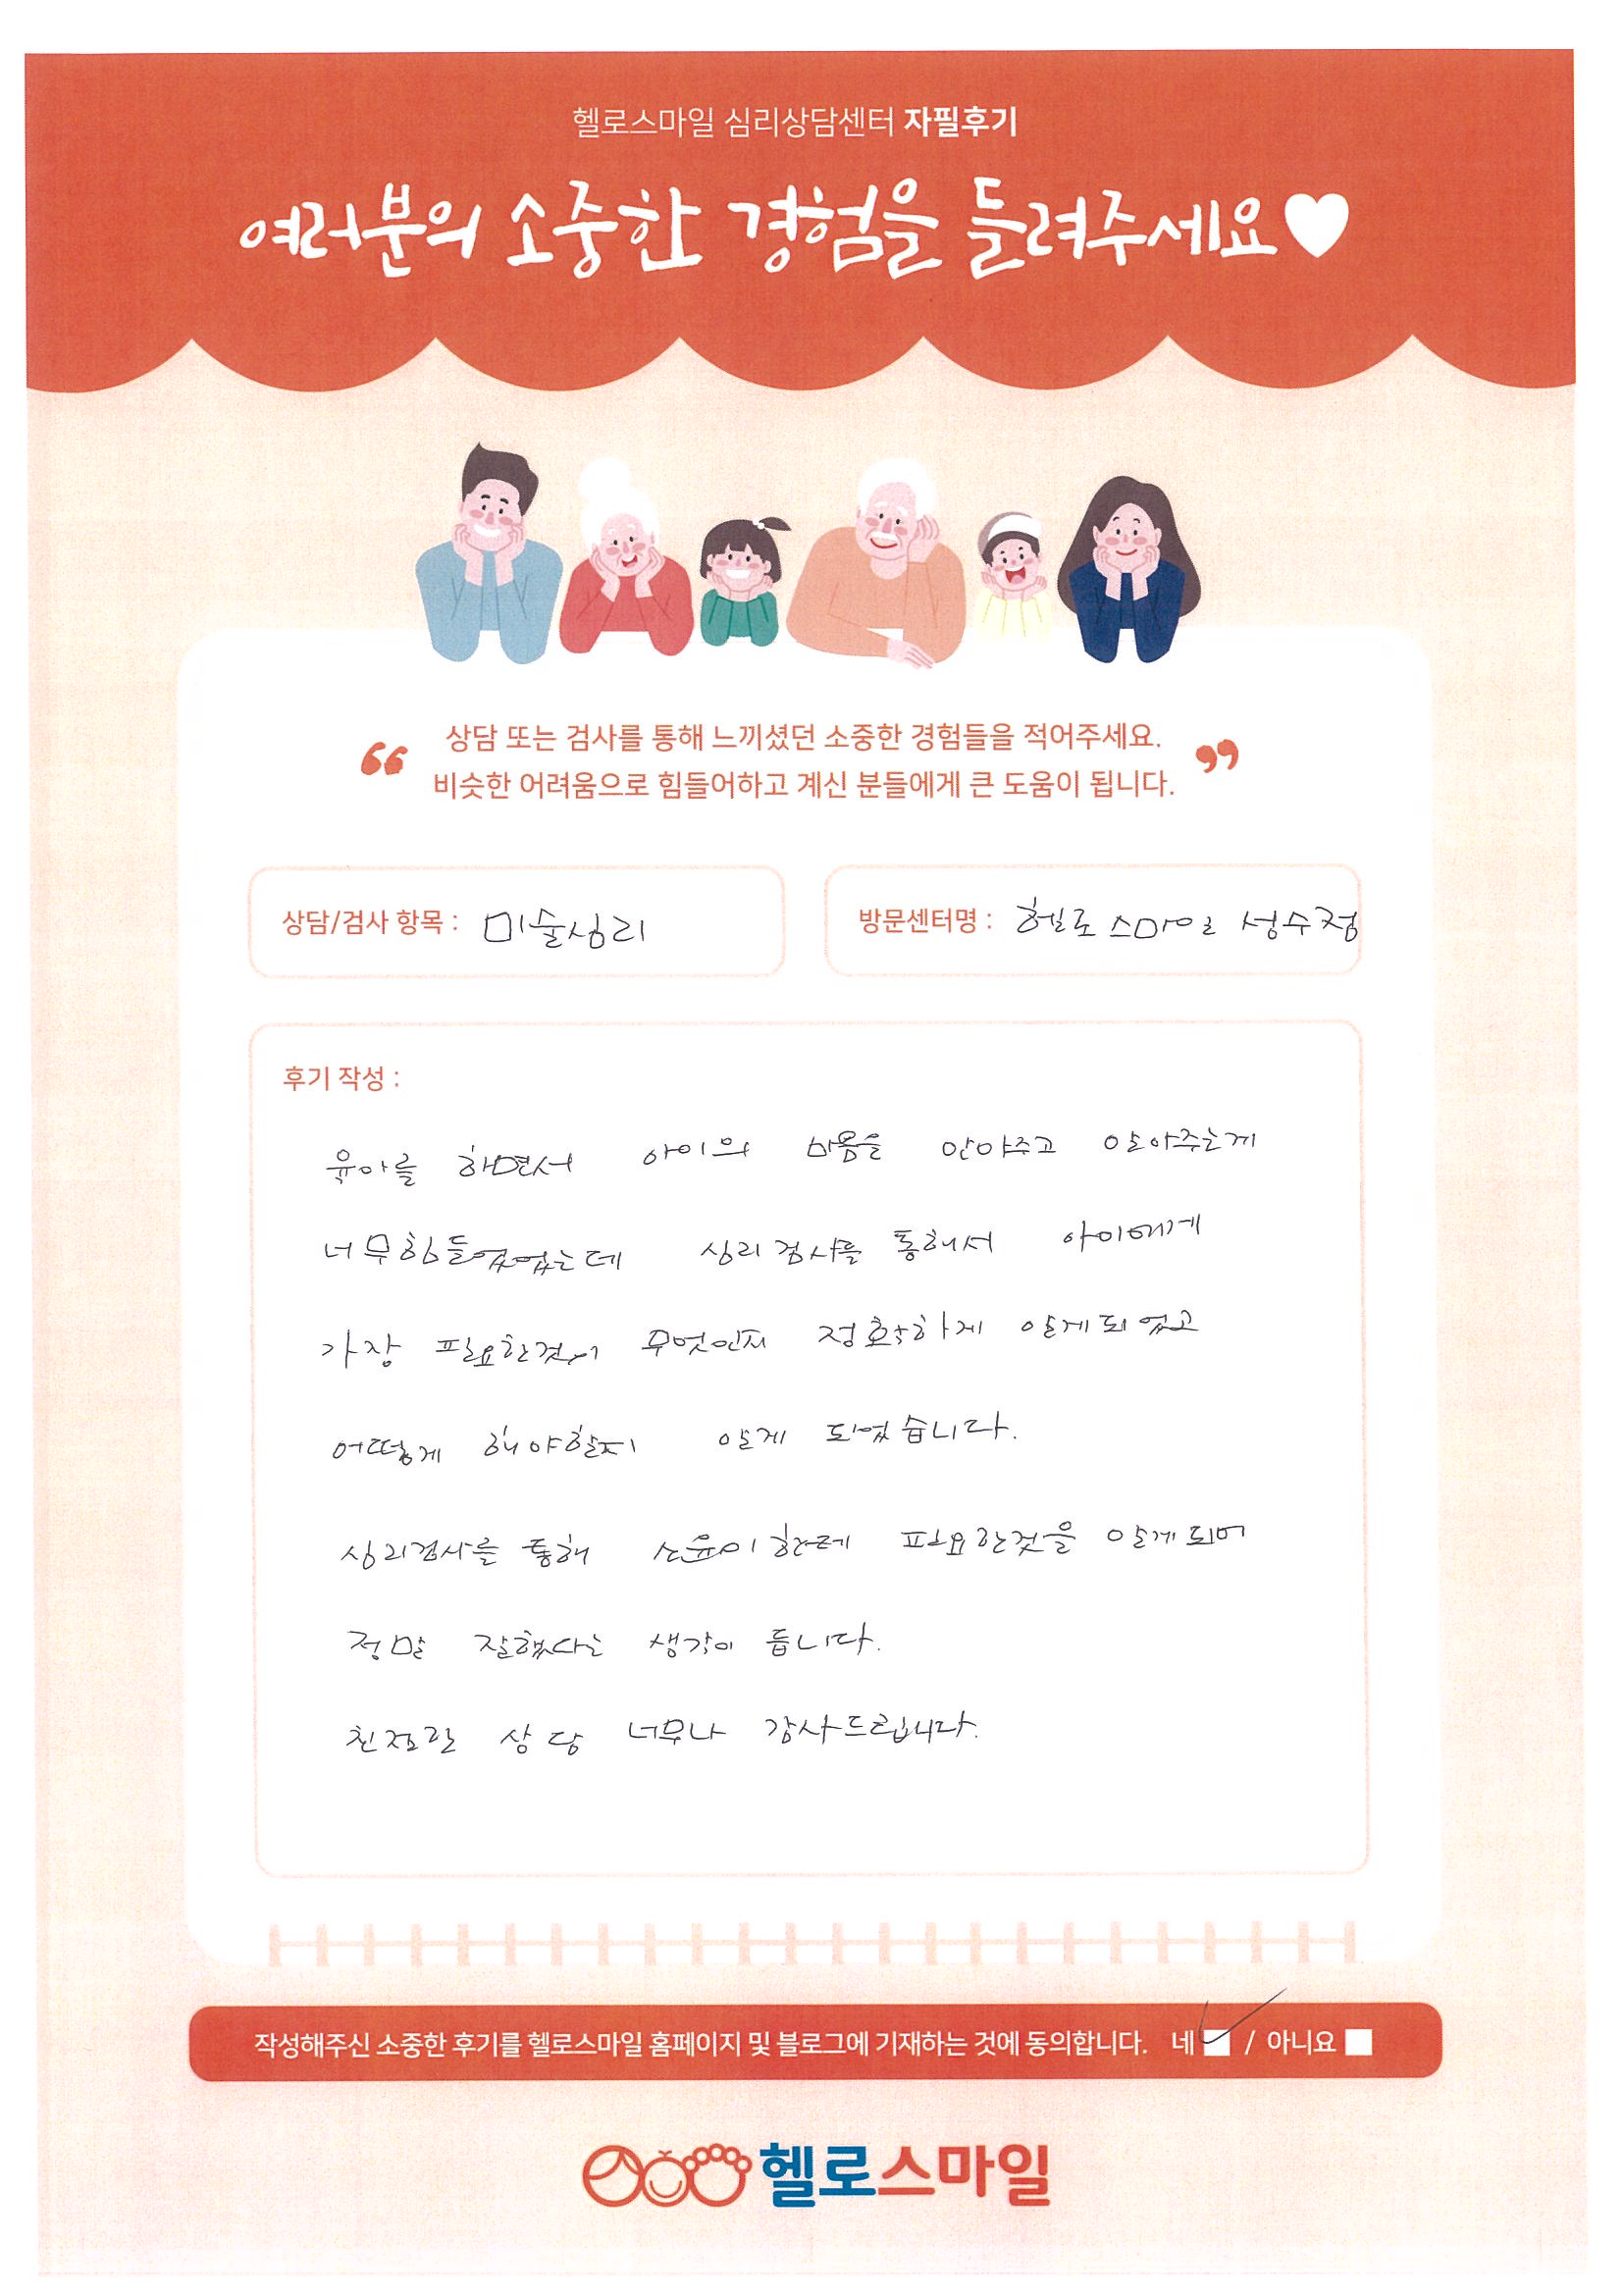 헬로스마일 심리상담센터 자필후기
여러분의 소중한 경험을 들려주세요♥
“ 상담 또는 검사를 통해 느끼셨던 소중한 경험들을 적어주세요.
비슷한 어려움으로 힘들어하고 계신 분들에게 큰 도움이 됩니다. ”
상담/검사 항목 : 미술심리
방문센터명 : 헬로스마일 성수점
후기 작성 :
육아를 하면서 아이의 마음을 안아주고 알아주는게
너무힘들었었는데 심리검사를 통해서 아이에게
가장 필요한것이 무엇인지 정확하게 알게되었고
어떻게 해야할지 알게 되었습니다.
심리검사를 통해 소윤이한테 필요한것을 알게되어
정말 잘했다는 생각이 듭니다.
친절한 상담 너무나 감사드립니다.
작성해주신 소중한 후기를 헬로스마일 홈페이지 및 블로그에 기재하는 것에 동의합니다. 네 / 아니요
헬로스마일